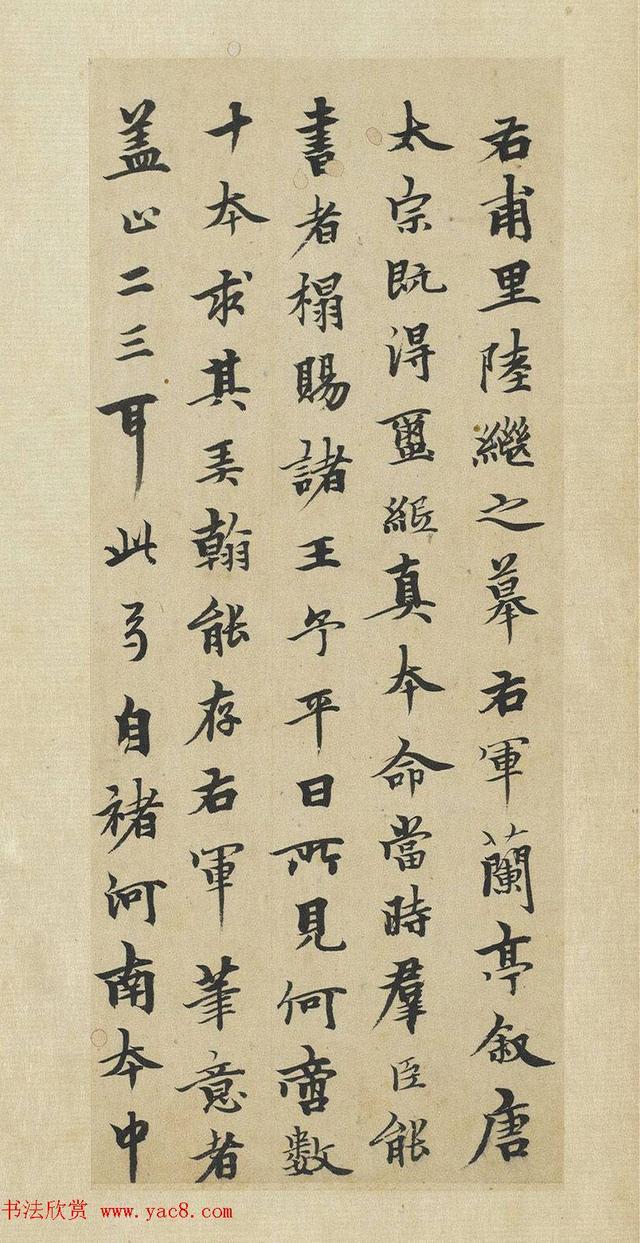 右甫里陸繼之摹右軍蘭亭叙唐
太宗既得璽紙真本命當時羣臣能
書者榻賜諸王予平日所見何啻數
十本求其美翰能存右軍筆意者
盖止二三耳此乃自褚河南本中
书法欣赏 www.yac8.com